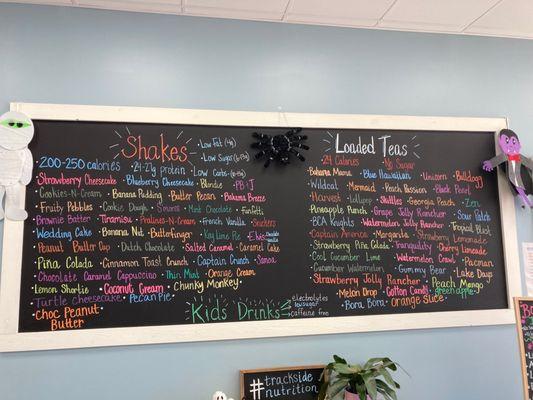 Shakes
•Low Fat (4g)
•Low Sugar
•200-250 calories •24-27g protein •Low Carb
•Strawberry Cheesecake •Blueberry Cheesecake •Blondie •PB+J
•Cookies-N-Cream •Banana Pudding •Butter Pecan •Bahama Breeze
•Fruity Pebbles •Cookie Dough •S'mores •Mint Chocolate •Funfetti
•Brownie Batter •Tiramisu •Pralines-N-Cream •French Vanilla •Snickers
•Wedding Cake •Banana Nut •Butterfinger •Key Lime Pie
•Peanut Butter Cup •Dutch Chocolate •Salted Caramel •Caramel Cake
•Piña Colada •Cinnamon Toast Crunch •Captain Crunch •Samoa
•Chocolate Caramel Cappuccino •Thin Mint •Orange Cream
•Lemon Shortie •Coconut Cream •Chunky Monkey
•Turtle Cheesecake •Pecan Pie
•Choc Peanut Butter
Kids Drinks
electrolytes
low sugar
caffeine free
Loaded Teas
•24 Calories •No Sugar
•Bahama Mama •Blue Hawaiian •Unicorn •Bulldog
•Wildcat •Mermaid •Peach Passion •Black Pearl
•Harvest •Lollipop •Skittles •Georgia Peach •Zen
•Pineapple Punch •Grape Jolly Rancher •Sour Patch
•BCA Knights •Watermelon Jolly Rancher •Tropical Blast
•Captain America •Margarita •Strawberry Lemonade
•Strawberry Piña Colada •Tranquility •Cherry Limeade
•Cool Cucumber Lime •Watermelon Crawl •Pacman
•Cucumber Watermelon •Gummy Bear •Lake Days
•Strawberry Jolly Rancher •Peach Mango
•Melon Drop •Cotton Candy •green apple
•Bora Bora •Orange Slice
#trackside
nutrition